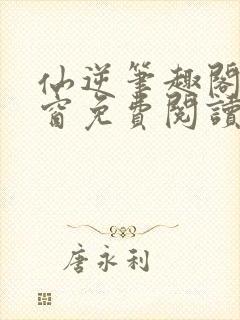 仙逆筆趣閣
窗免費閱讀
唐永利